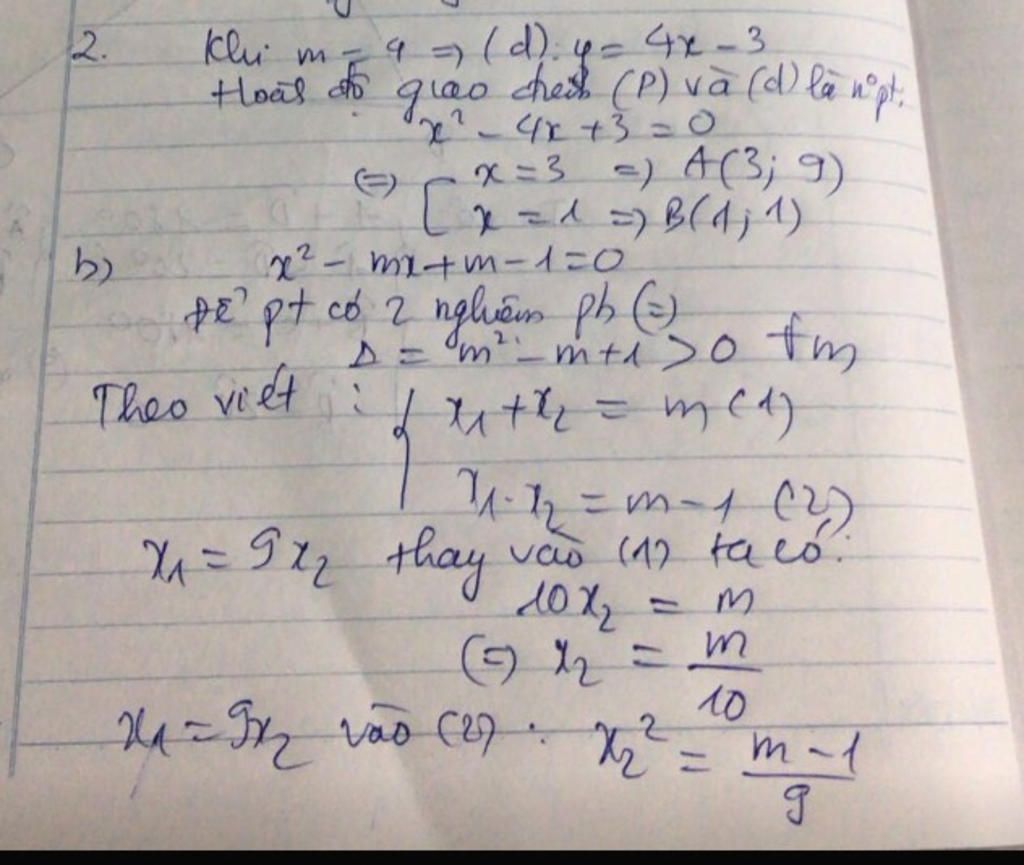 2. Khi m = 4 => (d): y = 4x - 3
Hoành độ giao điểm (P) và (d) là n° pt:
x² - 4x + 3 = 0
(=) [ x = 3 => A(3; 9)
x = 1 => B(1; 1)
b) x² - mx + m - 1 = 0
Để pt có 2 nghiệm pb (=)
Δ = m² - m + 1 > 0 ∀m
Theo viét : { x₁ + x₂ = m (1)
x₁.x₂ = m - 1 (2)
x₁ = 9x₂ thay vào (1) ta có:
10x₂ = m
(=) x₂ = m/10
x₁ = 9x₂ vào (2) : x₂² = m - 1 / 9